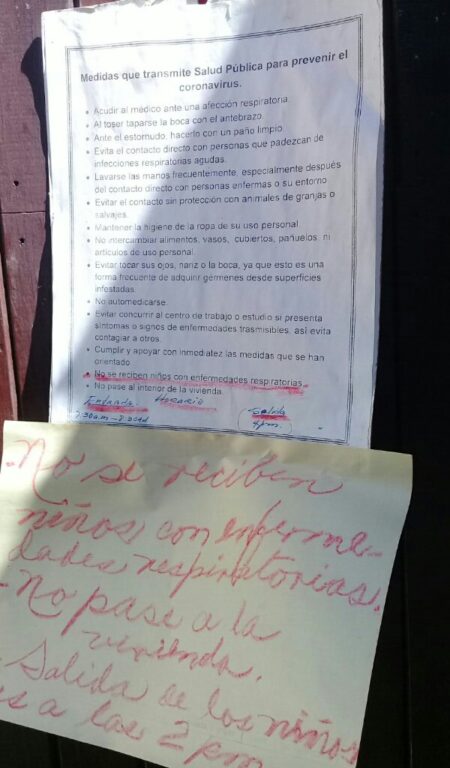 Medidas que transmite Salud Pública para prevenir el
coronavirus.
• Acudir al médico ante una afección respiratoria.
• Al toser taparse la boca con el antebrazo.
• Ante el estornudo, hacerlo con un paño limpio.
• Evita el contacto directo con personas que padezcan de
infecciones respiratorias agudas.
• Lavarse las manos frecuentemente, especialmente después
del contacto directo con personas enfermas o su entorno
• Evitar el contacto sin protección con animales de granjas o
salvajes.
• Mantener la higiene de la ropa de su uso personal.
• No intercambiar alimentos, vasos, cubiertos, pañuelos, ni
artículos de uso personal.
• Evitar tocar sus ojos, nariz o la boca, ya que esto es una
forma frecuente de adquirir gérmenes desde superficies
infestadas.
• No automedicarse.
• Evitar concurrir al centro de trabajo o estudio si presenta
síntomas o signos de enfermedades trasmisibles, así evita
contagiar a otros.
• Cumplir y apoyar con inmediatez las medidas que se han
orientado.
• No se reciben niños con enfermedades respiratorias.
• No pase al interior de la vivienda.
Entrada Horario Salida
7:30am - 4pm.
- No se reciben
niños con enferme-
dades respiratorias.
- No pase a la
vivienda.
- Salida de los niños
es a las 2 pm